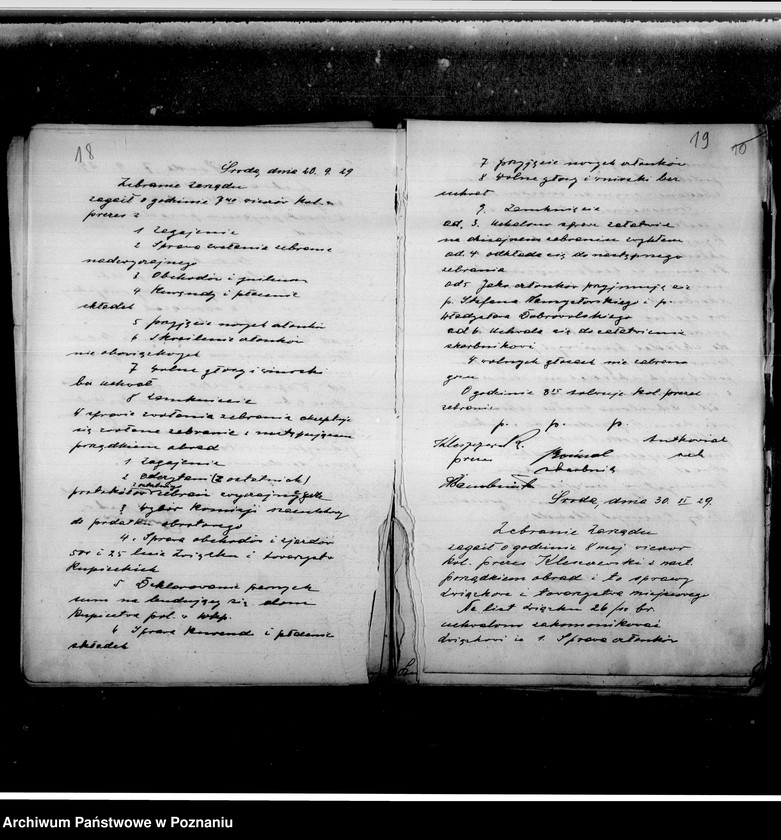 18
Środa, dnia 20.9.29
Zebranie zarządu
zagaił o godzinie 7 40 wieczór kol.
prezes :
1 Zagajenie
2 Sprawa zwołania zebrania
nadzwyczajnego
3 Obchodów i
4 Kurendy i płacenie
składek
5 przyjęcie nowych członków
6 Skreślenie członków
nie obowiązkowych
7 Wolne głosy i wnioski
bez uchwał
8 Zamknięcie
W sprawie zwołania zebrania akceptuje
się zwołane zebranie z następującem
porządkiem obrad
1 Zagajenie
2 odczytanie (z ostatnich)
protokołów zebrań
3 Wybór Komisji
do podatku obrotowego
4. Sprawa obchodów i zjazdów
50 i 25 lecia Związku i towarzystw
Kupieckich
5 Deklarowanie pewnych
sum na budujący się dom
Kupiectwa pol. w
6 Sprawa Kurend i płacenie
składek
19
10
7 przyjęcie nowych członków
8 Wolne głosy i wnioski bez
uchwał
9. Zamknięcie
ad. 3. Uchwalono spraw załatwić
na dzisiejszem zebraniu zwykłem
ad. 4 odkłada się do następnego
zebrania
ad 5 Jako członków przyjmują się
p. Stefana Namysłowskiego i p.
Władysława Dobrowolskiego
ad 6. Uchwala się do załatwienia
skarbnikowi
W wolnych głosach nie zabrano
głosu
O godzinie 8 15 solwuje kol. prezes
zebranie
p. p. p.
prezes
skarbnik
sek
Środa, dnia 30. XI 29.
Zebranie Zarządu
zagaił o godzinie 8 mej wieczór
kol. prezes i nast.
porządkiem obrad i to sprawy
związkowe i towarzystwa miejscowego
Na list związku 26/ br.
uchwalono zakomunikować
związkowi że 1. Sprawa członków